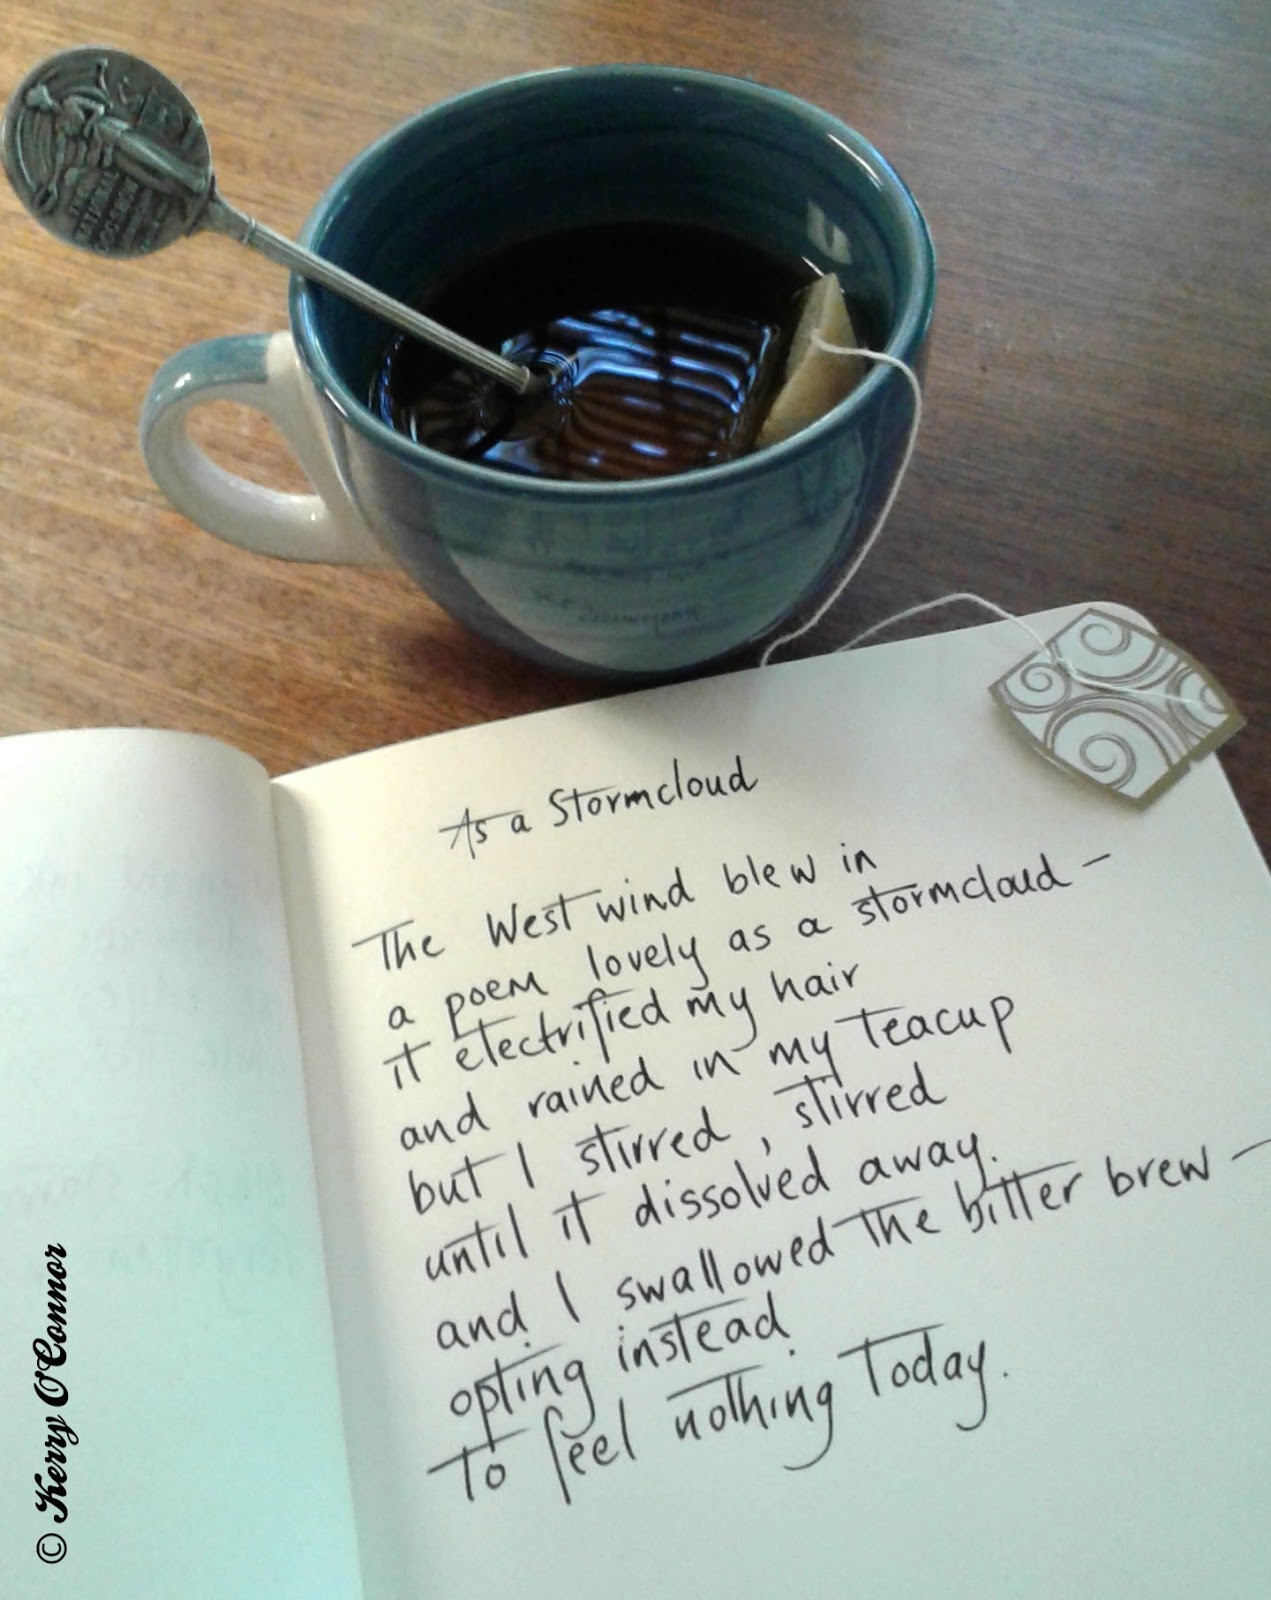 As a Stormcloud
The West wind blew in
a poem lovely as a stormcloud –
it electrified my hair
and rained in my teacup
but I stirred, stirred
until it dissolved away.
and I swallowed the bitter brew –
opting instead
To feel nothing Today.
© Kerry O'Connor